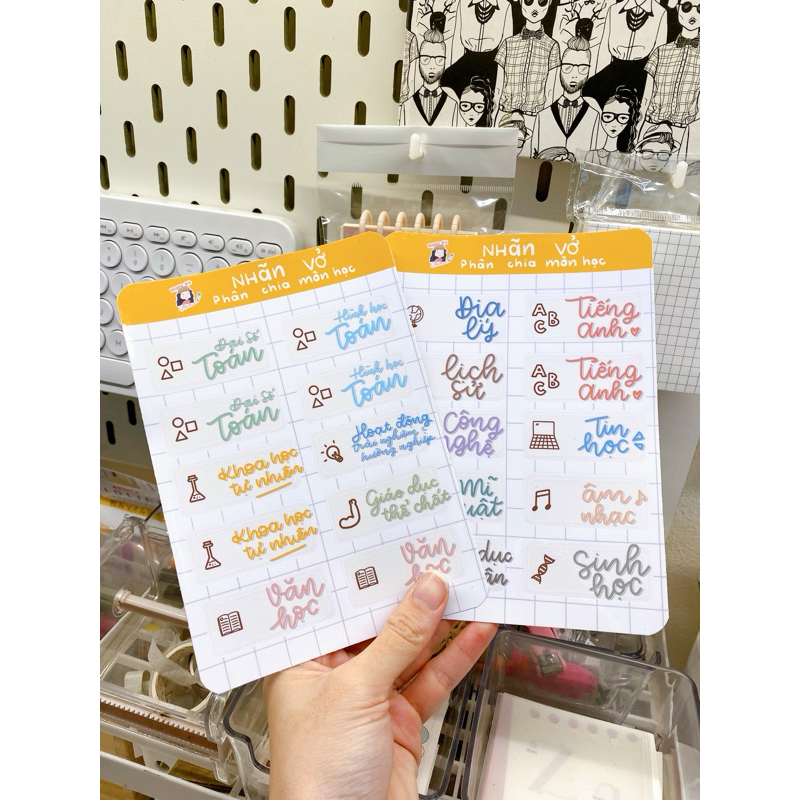 NHãN VỞ
Phân chia môn học
Đại Số
Toán
Hình học
Toán
Đại Số
Toán
Hình học
Toán
Khoa học
tự nhiên
Hoạt động
trải nghiệm
hướng nghiệp
Khoa học
tự nhiên
Giáo dục
thể chất
Văn
học
Văn
học
NHãN VỞ
Phân chia môn học
Địa
lý
ABC
Tiếng
anh
lịch
sử
ABC
Tiếng
anh
Công
nghệ
Tin
học
Mĩ
thuật
âm
nhạc
dục
Sinh
học